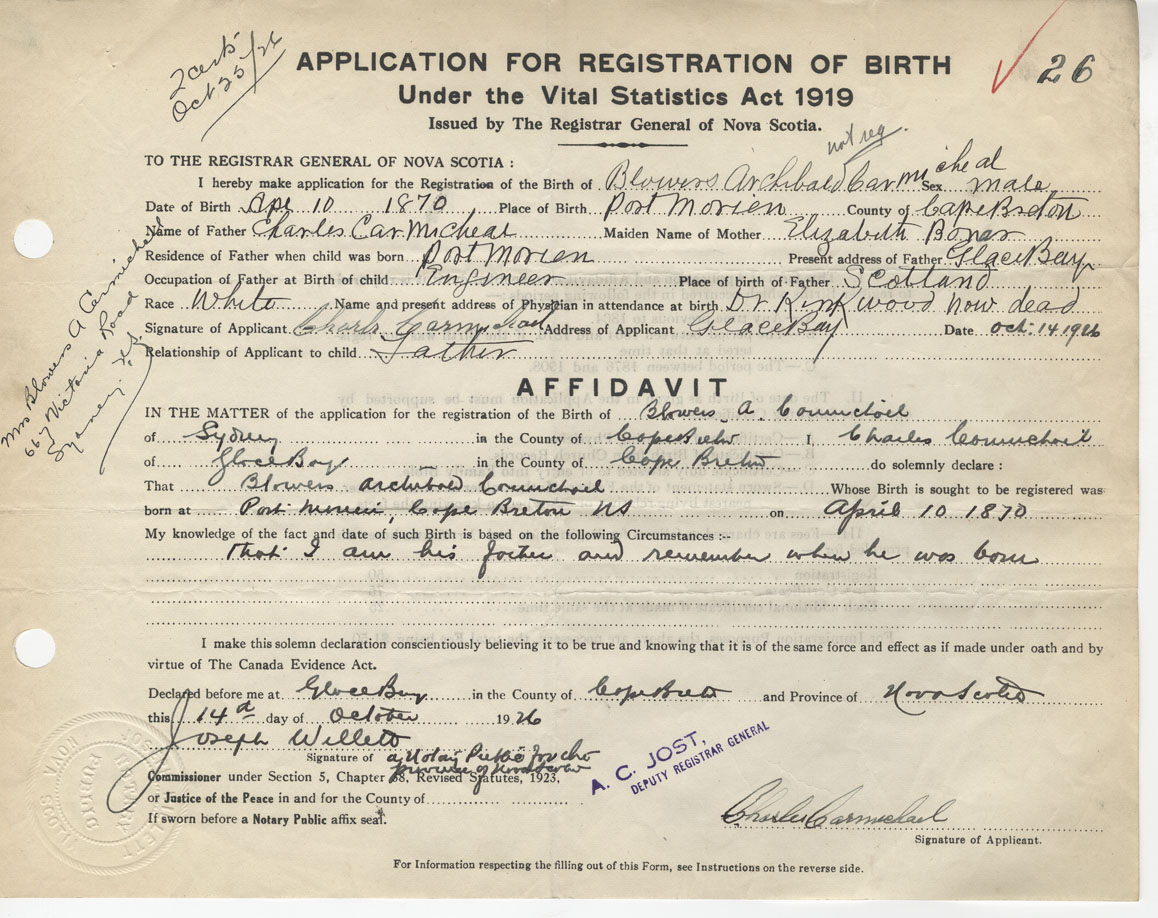 2 certs
Oct 25/26
APPLICATION FOR REGISTRATION OF BIRTH
26
Under the Vital Statistics Act 1919
Issued by The Registrar General of Nova Scotia.
not reg.
TO THE REGISTRAR GENERAL OF NOVA SCOTIA :
I hereby make application for the Registration of the Birth of Blowers Archibald CarMicheal Sex male
Date of Birth Apl 10 1870 Place of Birth Port Morien County of Cape Breton
Name of Father Charles CarMicheal Maiden Name of Mother Elizabeth Bonar
Residence of Father when child was born Port Morien Present address of Father Glace Bay
Occupation of Father at Birth of child Engineer Place of birth of Father Scotland
Race White Name and present address of Physician in attendance at birth Dr Kirkwood now dead
Signature of Applicant Charls Carmichael Address of Applicant Glace Bay Date oct. 14 1926
Relationship of Applicant to child Father
Mrs Blowers A Carmichael
667 Victoria Road
Sydney N.S.
AFFIDAVIT
IN THE MATTER of the application for the registration of the Birth of Blowers A. Carmichael
of Sydney in the County of Cape Breton I, Charles Carmichael
of Glace Bay in the County of Cape Breton do solemnly declare :
That Blowers Archibald Carmichael Whose Birth is sought to be registered was
born at Port Morien, Cape Breton NS on April 10 1870
My knowledge of the fact and date of such Birth is based on the following Circumstances :--
That I am his father and remember when he was born
I make this solemn declaration conscientiously believing it to be true and knowing that it is of the same force and effect as if made under oath and by
virtue of The Canada Evidence Act.
Declared before me at Glace Bay in the County of Cape Breton and Province of Nova Scotia
this 14th day of October 1926
Joseph Willett
Signature of a Notary Public for the
Province of Nova Scotia
Commissioner under Section 5, Chapter 38, Revised Statutes, 1923,
or Justice of the Peace in and for the County of
If sworn before a Notary Public affix seal.
A. C. JOST,
DEPUTY REGISTRAR GENERAL
Charles Carmichael
Signature of Applicant.
For Information respecting the filling out of this Form, see Instructions on the reverse side.